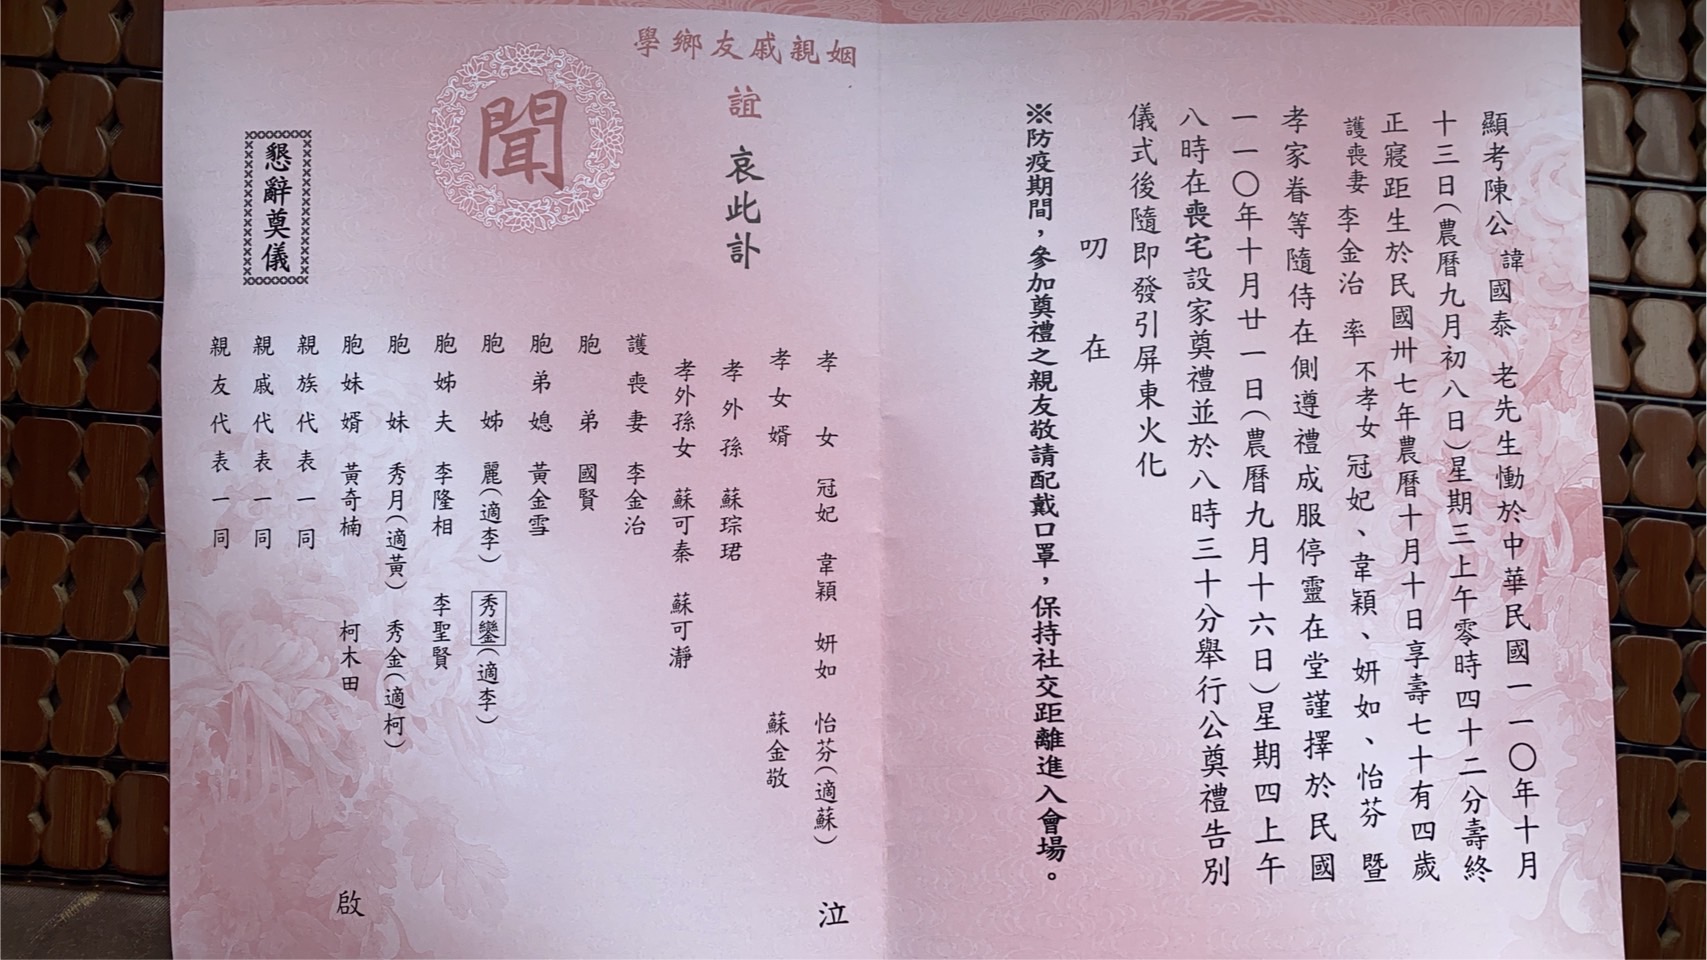 顯考陳公諱國泰 老先生慟於中華民國一一〇年十月
十三日(農曆九月初八日)星期三上午零時四十二分壽終
正寢距生於民國卅七年農曆十月十日享壽七十有四歲
護喪妻 李金治 率 不孝女 冠妃、韋穎、妍如、怡芬 暨
孝家眷等隨侍在側遵禮成服停靈在堂謹擇於民國
一一〇年十月廿一日(農曆九月十六日)星期四上午
八時在喪宅設家奠禮並於八時三十分舉行公奠禮告別
儀式後隨即發引屏東火化
叨 在
※防疫期間，參加奠禮之親友敬請配戴口罩，保持社交距離進入會場。
姻親戚友鄉學
誼 哀此訃
聞
孝女 冠妃 韋穎 妍如 怡芬(適蘇) 泣
孝女婿 蘇金敬
孝外孫 蘇琮珺
孝外孫女 蘇可秦 蘇可瀞
護喪妻 李金治
胞弟 國賢
胞弟媳 黃金雪
胞姊 麗(適李) 秀鑾(適李)
胞姊夫 李隆相 李聖賢
胞妹 秀月(適黃) 秀金(適柯)
胞妹婿 黃奇楠 柯木田 啟
親族代表一同
親戚代表一同
親友代表一同
懇辭奠儀